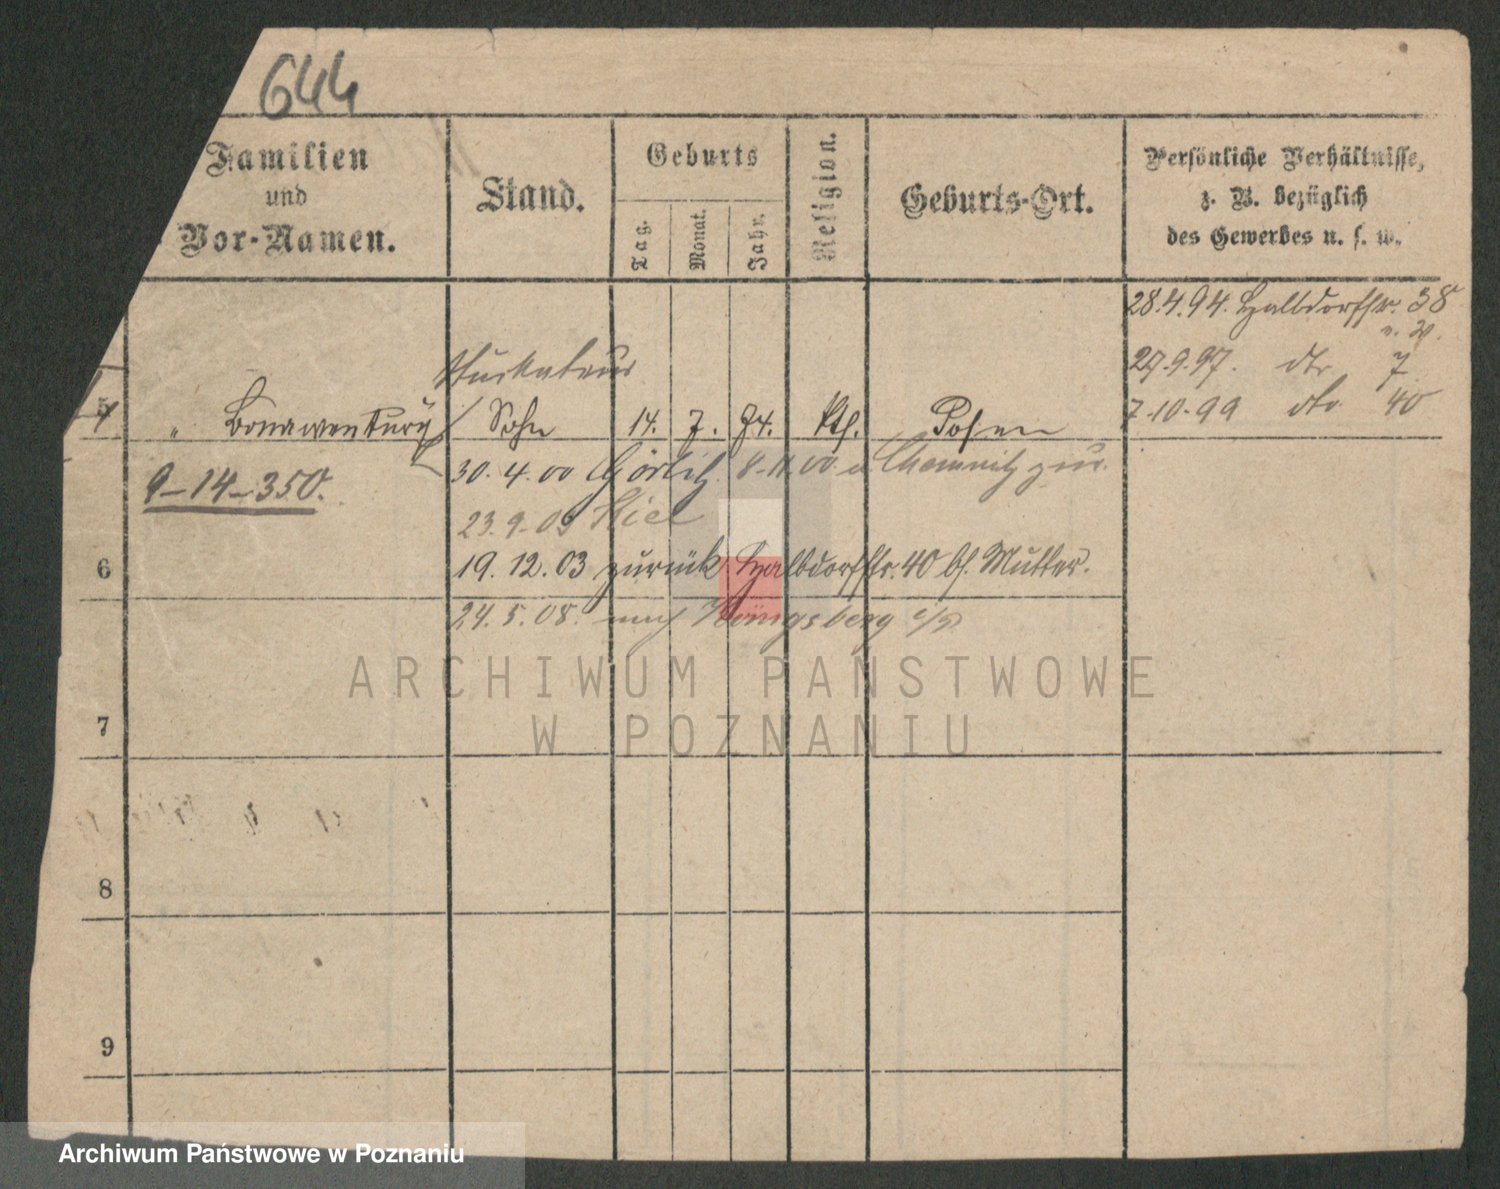 644
Familien
und
Vor-Namen.
Stand.
Geburts
Tag.
Monat.
Jahr.
Religion.
Geburts-Ort.
Persönliche Verhältnisse,
z. B. bezüglich
des Gewerbes u. s. w.
28.4.94. Halbdorfstr. 38
29.9.97. dto 7
7-10-99 dto 40
Stuckateur
5 " Bonawentury Sohn 14. 7. 74. kth. Posen
30.4.00 Görlitz 8-11.00 v Chemnitz zur.
9-14-350.
23.9.03 Kiel
6
19.12.03 zurück Halbdorfstr. 40 bs. Mutter.
24.5.08. nach Königsberg
ARCHIWUM PAŃSTWOWE
W POZNANIU
7
8
9
Archiwum Państwowe w Poznaniu